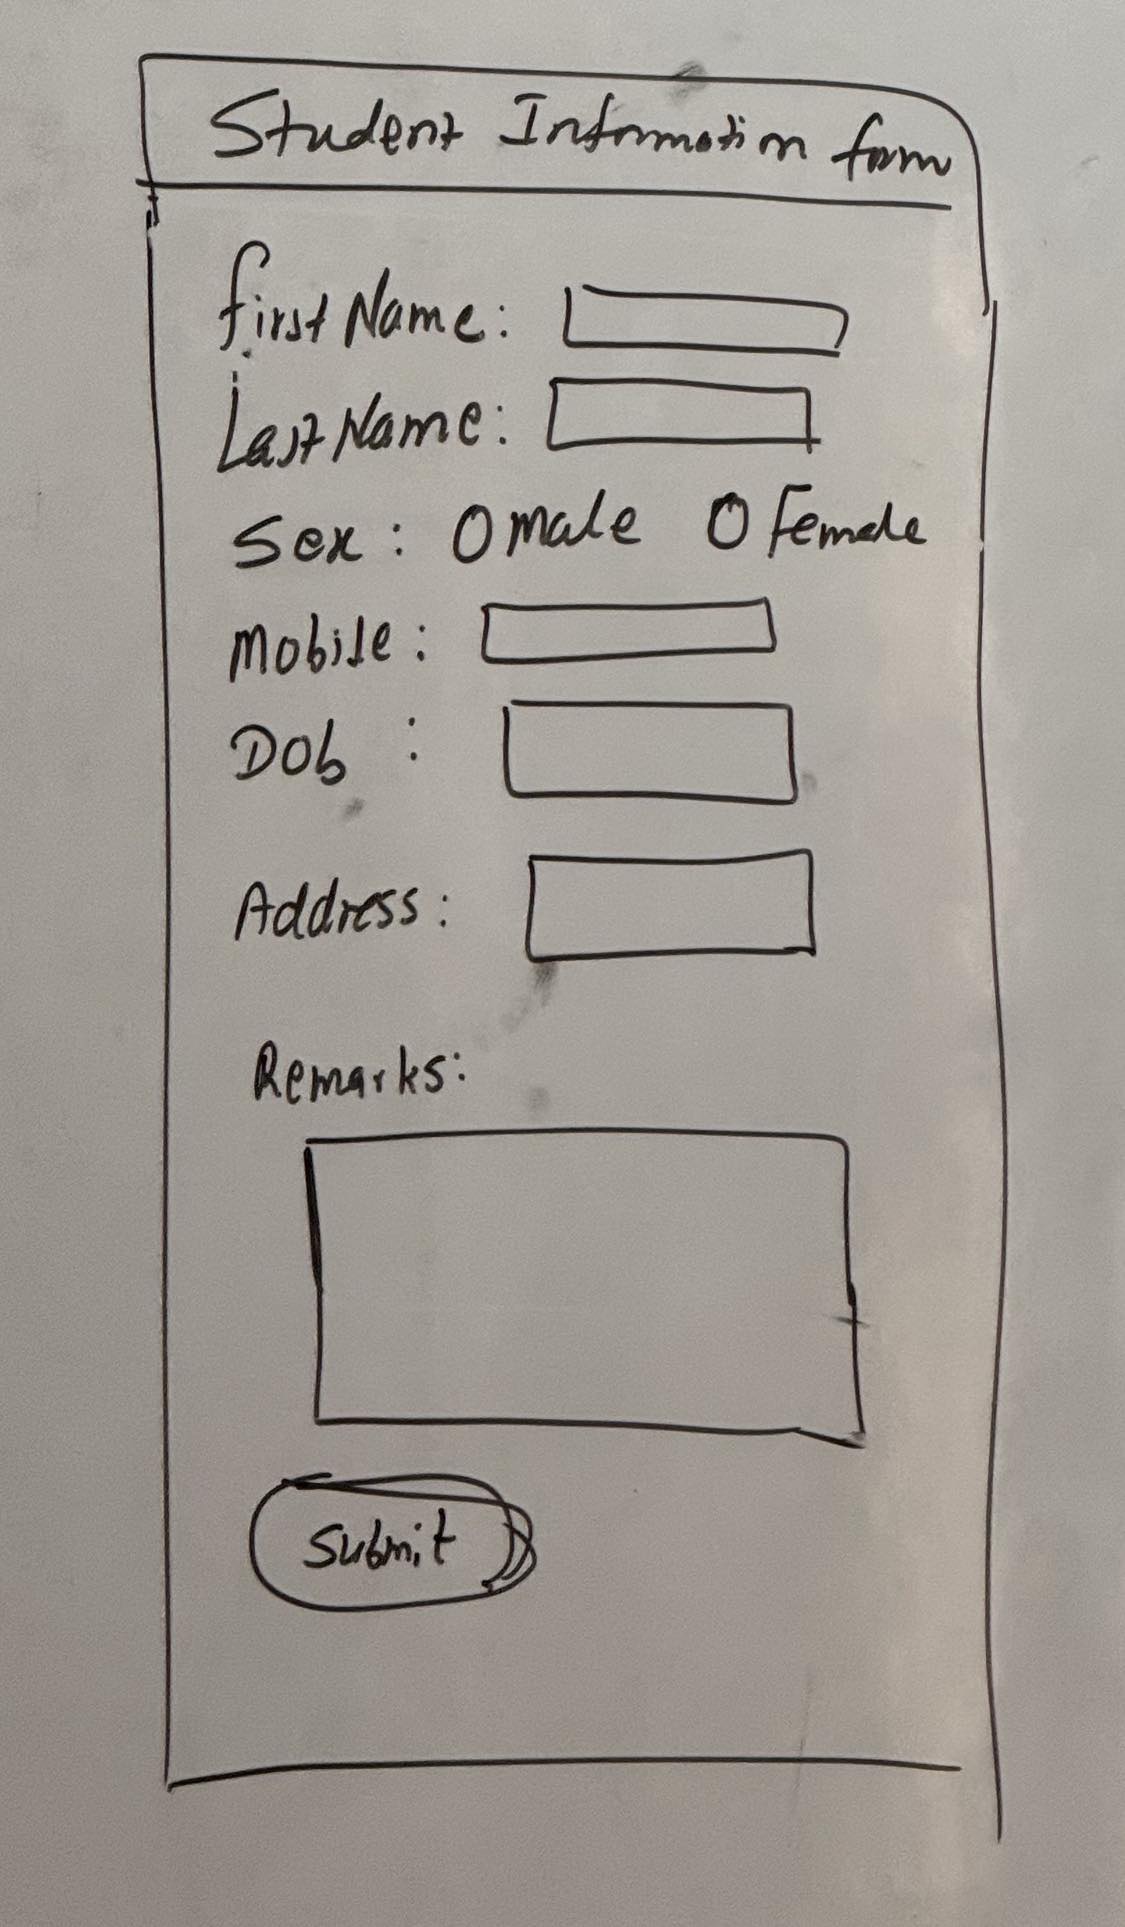 Student Information form
first Name:
Last Name:
Sex : O male O Female
Mobile :
DOb :
Address :
Remarks:
Submit